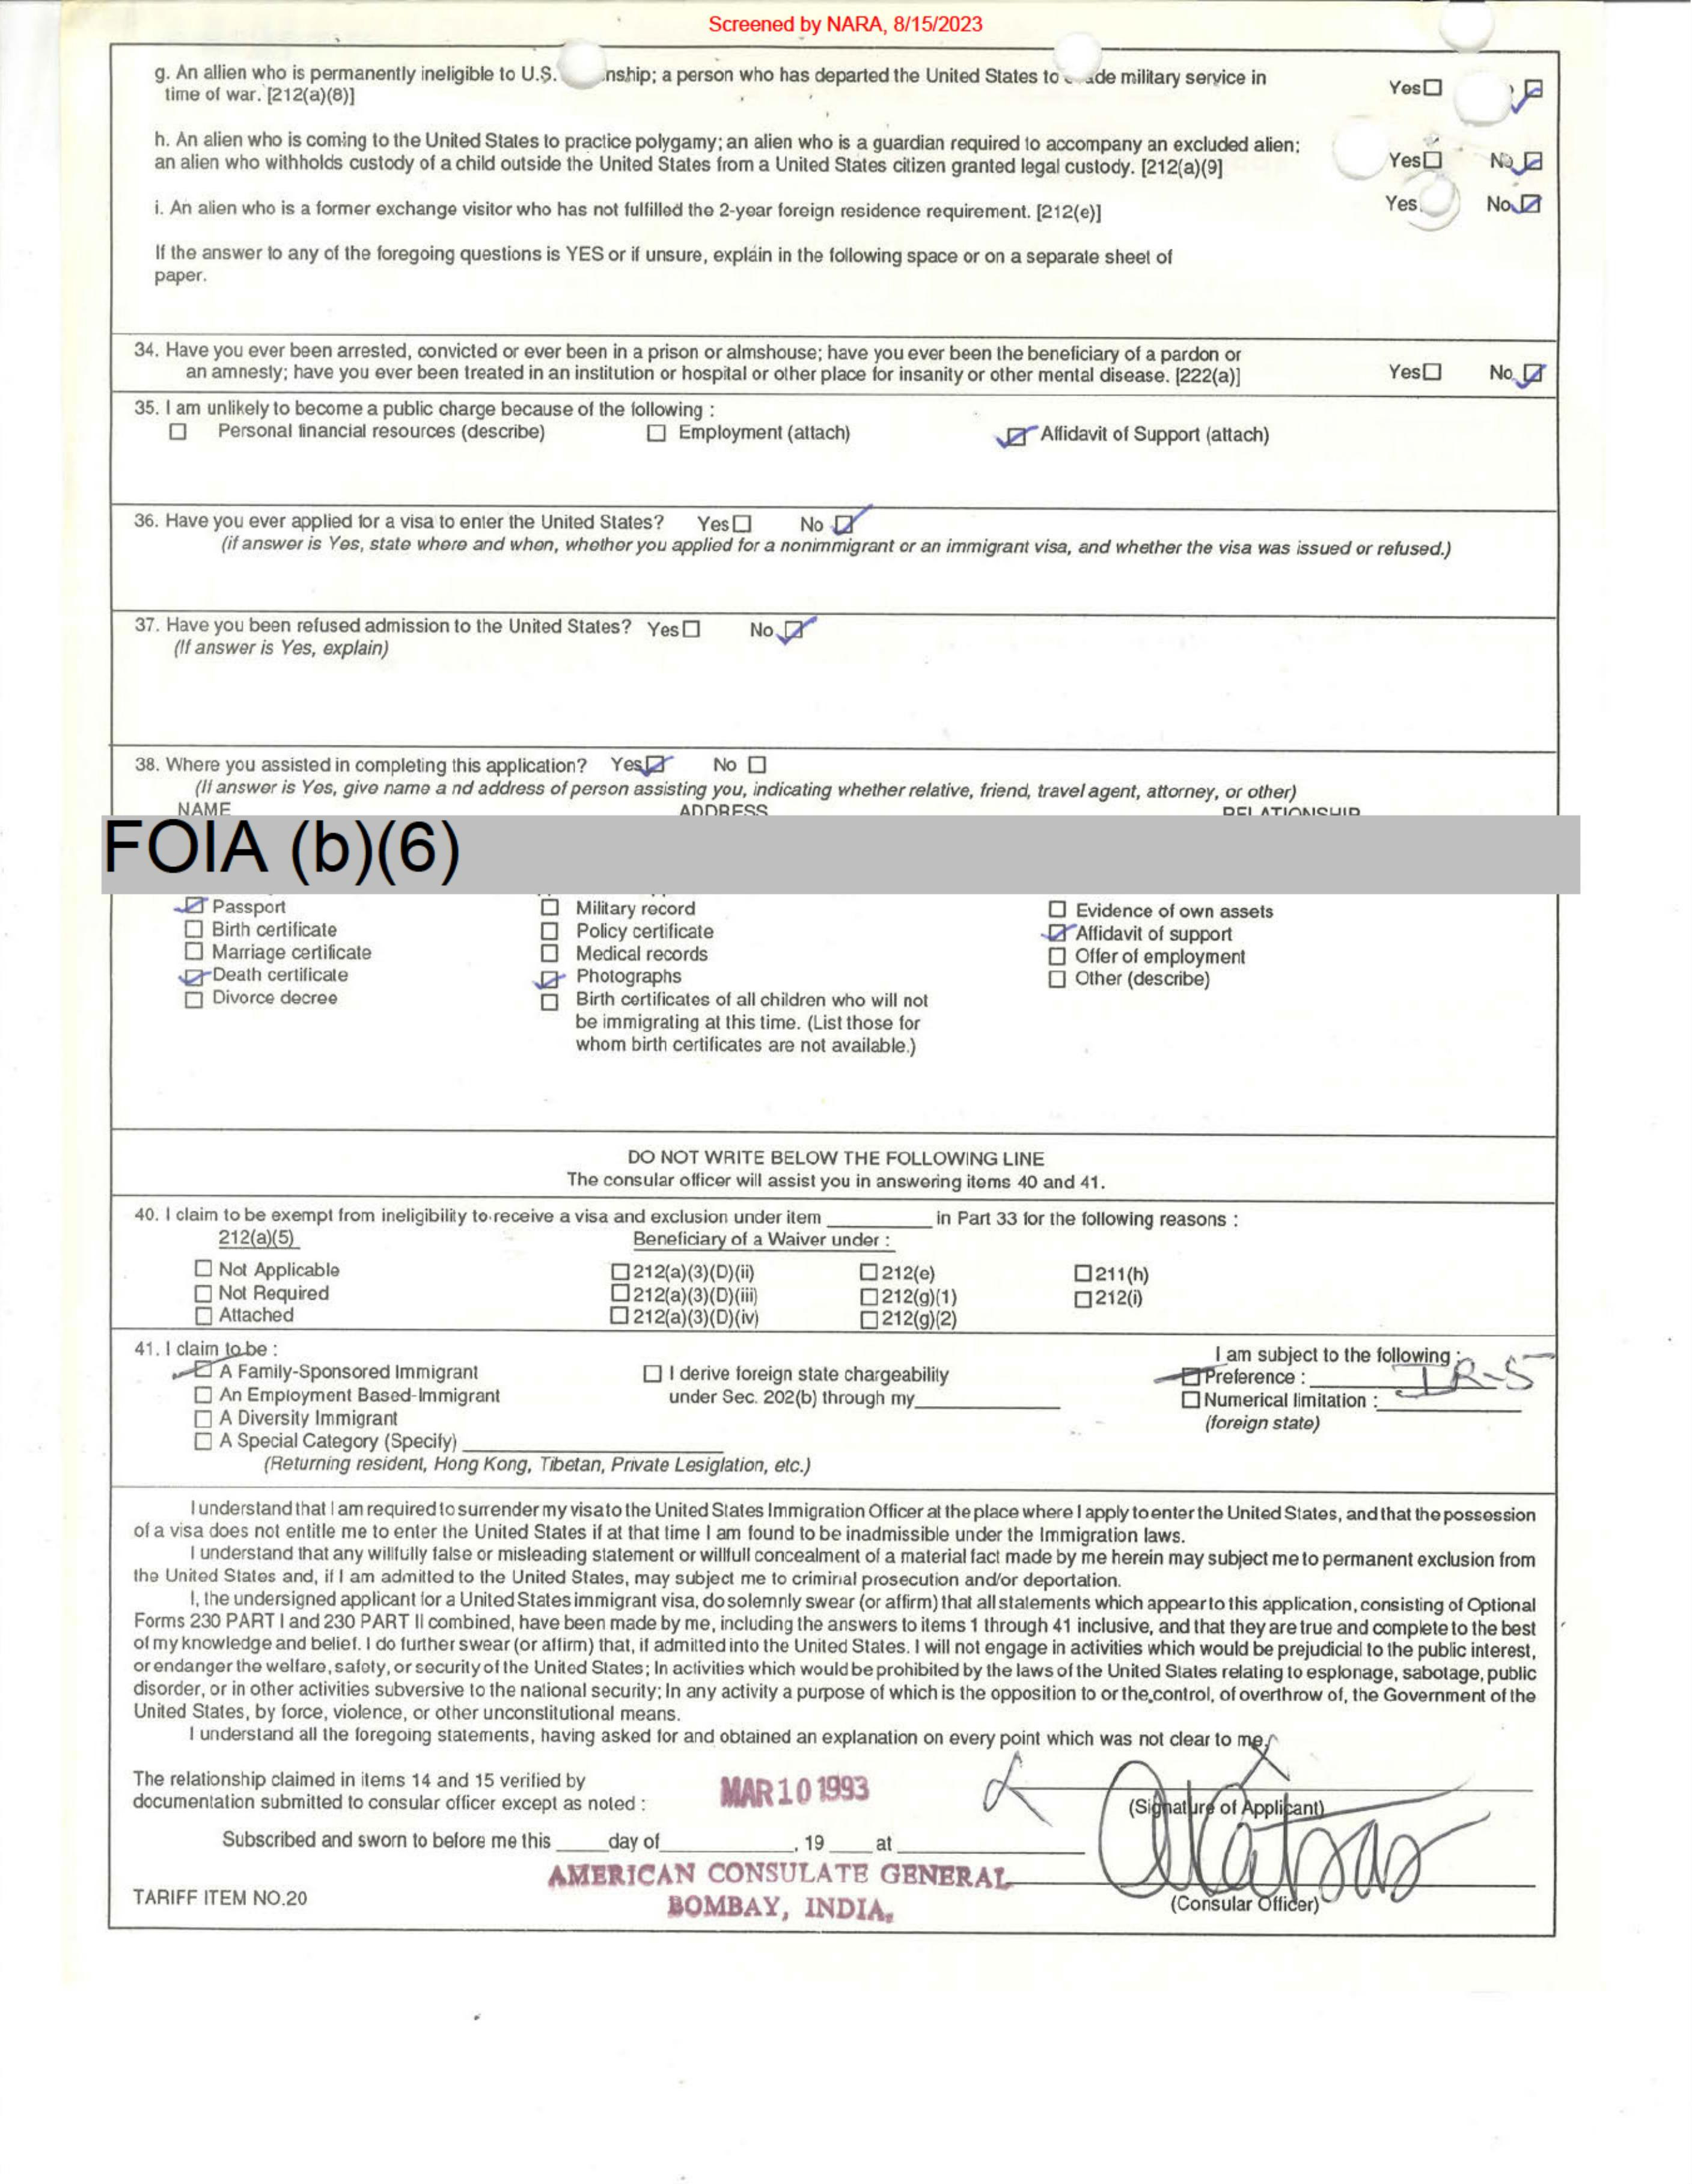 Screened by NARA, 8/15/2023
g. An allien who is permanently ineligible to U.S. nship; a person who has departed the United States to ade military service in
time of war. [212(a)(8)]
Yes☐ ☑
h. An alien who is coming to the United States to practice polygamy; an alien who is a guardian required to accompany an excluded alien;
an alien who withholds custody of a child outside the United States from a United States citizen granted legal custody. [212(a)(9]
Yes☐ No☑
i. An alien who is a former exchange visitor who has not fulfilled the 2-year foreign residence requirement. [212(e)]
Yes No☑
If the answer to any of the foregoing questions is YES or if unsure, explain in the following space or on a separate sheet of
paper.
34. Have you ever been arrested, convicted or ever been in a prison or almshouse; have you ever been the beneficiary of a pardon or
an amnesty; have you ever been treated in an institution or hospital or other place for insanity or other mental disease. [222(a)]
Yes☐ No☑
35. I am unlikely to become a public charge because of the following :
☐ Personal financial resources (describe) ☐ Employment (attach) ☑ Affidavit of Support (attach)
36. Have you ever applied for a visa to enter the United States? Yes☐ No☑
(if answer is Yes, state where and when, whether you applied for a nonimmigrant or an immigrant visa, and whether the visa was issued or refused.)
37. Have you been refused admission to the United States? Yes☐ No☑
(If answer is Yes, explain)
38. Where you assisted in completing this application? Yes☑ No☐
(If answer is Yes, give name a nd address of person assisting you, indicating whether relative, friend, travel agent, attorney, or other)
NAME ADDRESS RELATIONSHIP
FOIA (b)(6)
☑ Passport ☐ Military record ☐ Evidence of own assets
☐ Birth certificate ☐ Policy certificate ☑ Affidavit of support
☐ Marriage certificate ☐ Medical records ☐ Offer of employment
☑ Death certificate ☑ Photographs ☐ Other (describe)
☐ Divorce decree ☐ Birth certificates of all children who will not
be immigrating at this time. (List those for
whom birth certificates are not available.)
DO NOT WRITE BELOW THE FOLLOWING LINE
The consular officer will assist you in answering items 40 and 41.
40. I claim to be exempt from ineligibility to receive a visa and exclusion under item ________ in Part 33 for the following reasons :
212(a)(5) Beneficiary of a Waiver under :
☐ Not Applicable ☐212(a)(3)(D)(ii) ☐212(e) ☐211(h)
☐ Not Required ☐212(a)(3)(D)(iii) ☐212(g)(1) ☐212(i)
☐ Attached ☐212(a)(3)(D)(iv) ☐212(g)(2)
41. I claim to be : I am subject to the following :
☑ A Family-Sponsored Immigrant ☐ I derive foreign state chargeability ☑ Preference : IR-5
☐ An Employment Based-Immigrant under Sec. 202(b) through my________ ☐ Numerical limitation :________
☐ A Diversity Immigrant (foreign state)
☐ A Special Category (Specify)________
(Returning resident, Hong Kong, Tibetan, Private Lesiglation, etc.)
I understand that I am required to surrender my visa to the United States Immigration Officer at the place where I apply to enter the United States, and that the possession
of a visa does not entitle me to enter the United States if at that time I am found to be inadmissible under the Immigration laws.
I understand that any willfully false or misleading statement or willfull concealment of a material fact made by me herein may subject me to permanent exclusion from
the United States and, if I am admitted to the United States, may subject me to criminal prosecution and/or deportation.
I, the undersigned applicant for a United States immigrant visa, do solemnly swear (or affirm) that all statements which appear to this application, consisting of Optional
Forms 230 PART I and 230 PART II combined, have been made by me, including the answers to items 1 through 41 inclusive, and that they are true and complete to the best
of my knowledge and belief. I do further swear (or affirm) that, if admitted into the United States. I will not engage in activities which would be prejudicial to the public interest,
or endanger the welfare, safety, or security of the United States; In activities which would be prohibited by the laws of the United States relating to esplonage, sabotage, public
disorder, or in other activities subversive to the national security; In any activity a purpose of which is the opposition to or the control, of overthrow of, the Government of the
United States, by force, violence, or other unconstitutional means.
I understand all the foregoing statements, having asked for and obtained an explanation on every point which was not clear to me.
The relationship claimed in items 14 and 15 verified by
documentation submitted to consular officer except as noted :
MAR 10 1993
(Signature of Applicant)
Subscribed and sworn to before me this ____ day of________, 19 ____ at ________
AMERICAN CONSULATE GENERAL
BOMBAY, INDIA.
TARIFF ITEM NO.20
(Consular Officer)